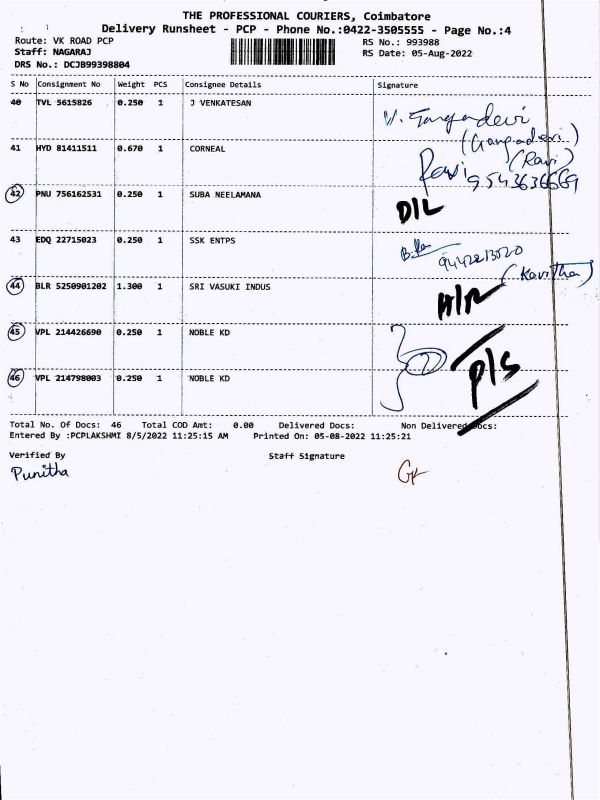 THE PROFESSIONAL COURIERS, Coimbatore
Delivery Runsheet - PCP - Phone No.:0422-3505555 - Page No.:4
Route: VK ROAD PCP RS No.: 993988
Staff: NAGARAJ RS Date: 05-Aug-2022
DRS No.: DCJB99398804
S No Consignment No Weight PCS Consignee Details Signature
40 TVL 5615826 0.250 1 J VENKATESAN V. Gangadevi
(Gangadevi)
41 HYD 81411511 0.670 1 CORNEAL Ravi (Ravi)
9543636669
42 PNU 756162531 0.250 1 SUBA NEELAMANA D/L
43 EDQ 22715023 0.250 1 SSK ENTPS 9442213520
(Kavitha)
44 BLR 5250901202 1.300 1 SRI VASUKI INDUS
45 VPL 214426690 0.250 1 NOBLE KD 2 P/S
46 VPL 214798003 0.250 1 NOBLE KD
Total No. Of Docs: 46 Total COD Amt: 0.00 Delivered Docs: Non Delivered Docs:
Entered By :PCPLAKSHMI 8/5/2022 11:25:15 AM Printed On: 05-08-2022 11:25:21
Verified By Staff Signature
Punitha